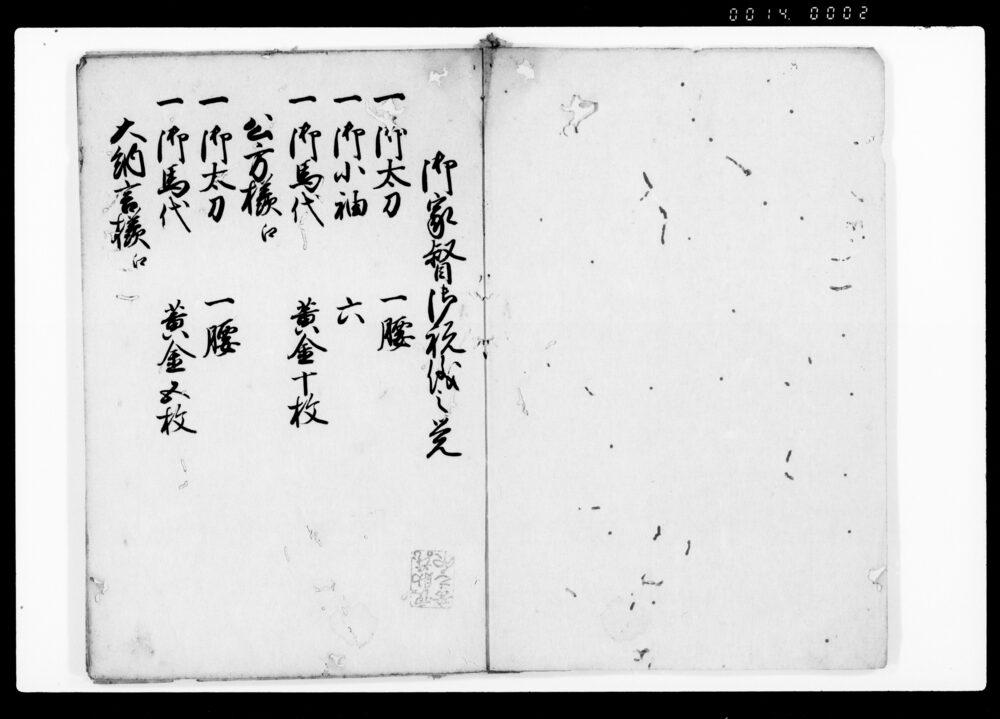 0014 0002
御家督御祝儀之覚
一御太刀 一腰
一御小袖 六
一御馬代 黄金十枚
公方様江
一御太刀 一腰
一御馬代 黄金五枚
大納言様江